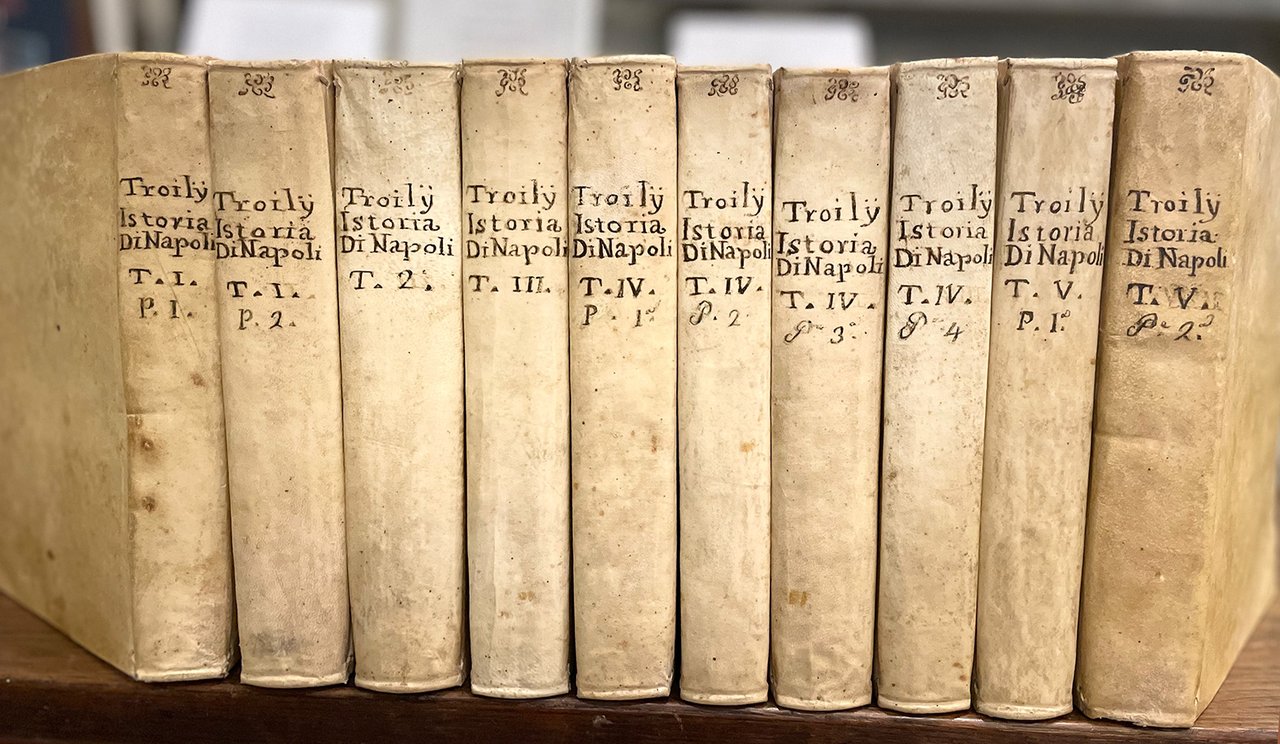 Troilÿ
Istoria
Di Napoli
T. I.
P. I.
Troilÿ
Istoria
Di Napoli
T. I.
P. 2.
Troilÿ
Istoria
Di Napoli
T. 2.
Troilÿ
Istoria
Di Napoli
T. III.
Troilÿ
Istoria
Di Napoli
T. IV.
P. 1ª
Troilÿ
Istoria
Di Napoli
T. IV.
P. 2
Troilÿ
Istoria
Di Napoli
T. IV.
Pᵉ 3ª
Troilÿ
Istoria
Di Napoli
T. IV.
Pᵉ 4
Troilÿ
Istoria
Di Napoli
T. V.
P. 1ª
Troilÿ
Istoria
Di Napoli
T. V.
Pᵉ 2ª